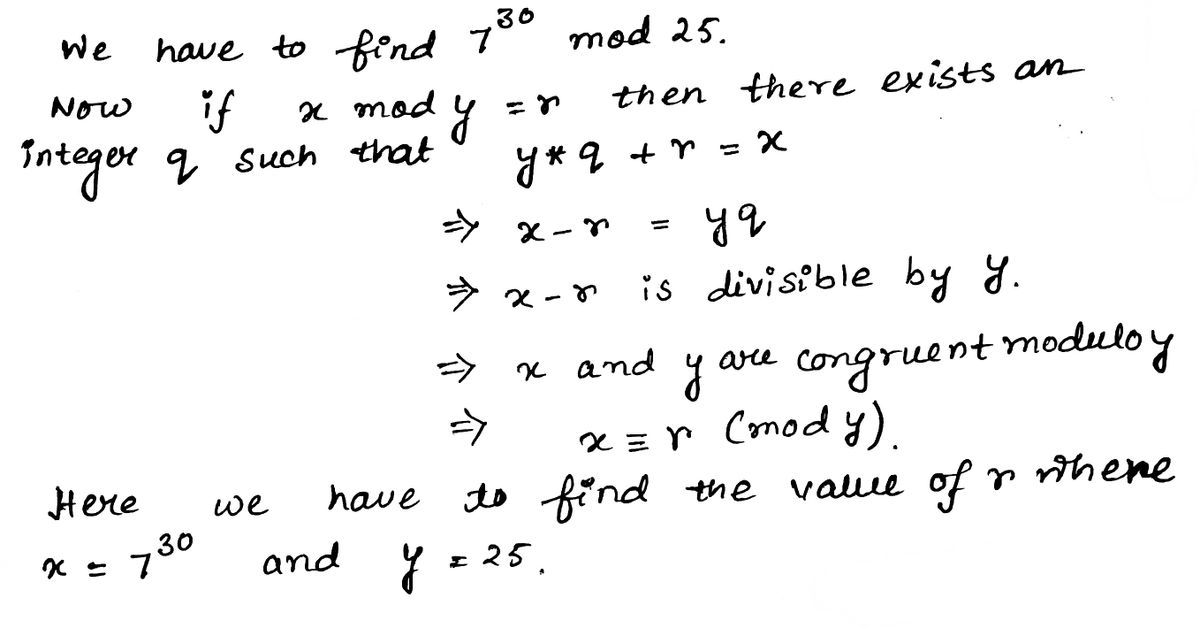 We have to find 7^30 mod 25.
Now if x mod y = r then there exists an
integer q such that y * q + r = x
⇒ x - r = yq
⇒ x - r is divisible by y.
⇒ x and y are congruent modulo y
⇒ x ≡ r (mod y).
Here we have to find the value of r where
x = 7^30 and y = 25.